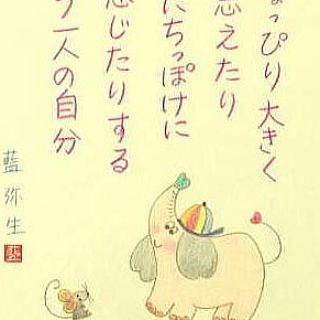 ょっぴり大きく
思えたり
にちっぽけに
感じたりする
う一人の自分
藍弥生